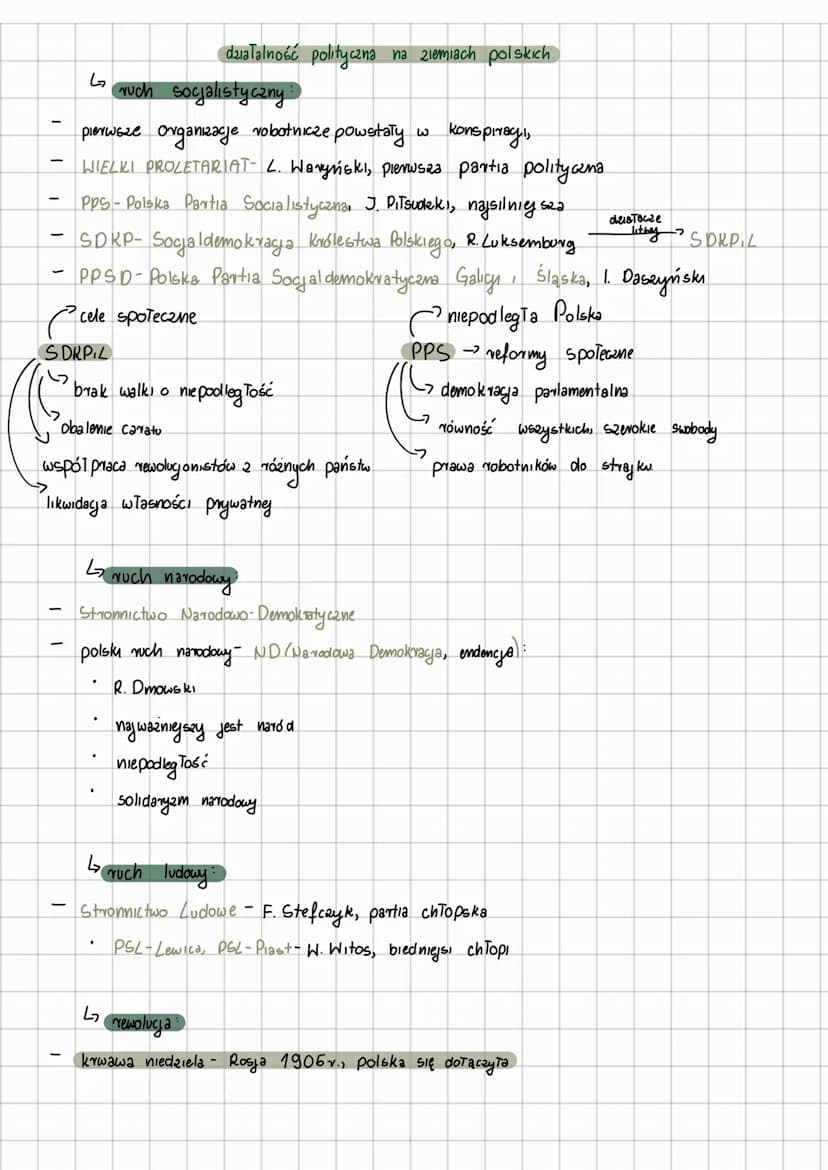 działalność polityczna na ziemiach polskich
↳ ruch socjalistyczny:
- pierwsze organizacje robotnicze powstały w konspiracji,
- WIELKI PROLETARIAT- L. Waryński, pierwsza partia polityczna
- PPS - Polska Partia Socialistyczna, J. Piłsudzki, najsilniejsza
- SDKP- Socjaldemokracja Królestwa Polskiego, R. Luksemburg działacze litwy → SDKPiL
- PPSD- Polska Partia Socjaldemokratyczna Galicji i Śląska, I. Daszyński
cele społeczne
niepodległa Polska
SDKPiL
PPS → reformy społeczne
brak walki o niepodległość
demokracja parlamentalna
obalenie caratu
równość wszystkich, szerokie swobody
współpraca rewolucjonistów z różnych państw
prawa robotników do strajku
likwidacja własności prywatnej
↳ ruch narodowy:
- Stronnictwo Narodowo-Demokratyczne
- polski ruch narodowy- ND (Narodowa Demokracja, endencja):
· R. Dmowski
· najważniejszy jest naród
· niepodległość
· solidaryzm narodowy
↳ ruch ludowy:
- Stronnictwo Ludowe - F. Stefczyk, partia chłopska
· PSL-Lewica, PSL-Piast- W. Witos, biedniejsi chłopi
↳ rewolucja:
- krwawa niedziela - Rosja 1905r., polska się dołączyła